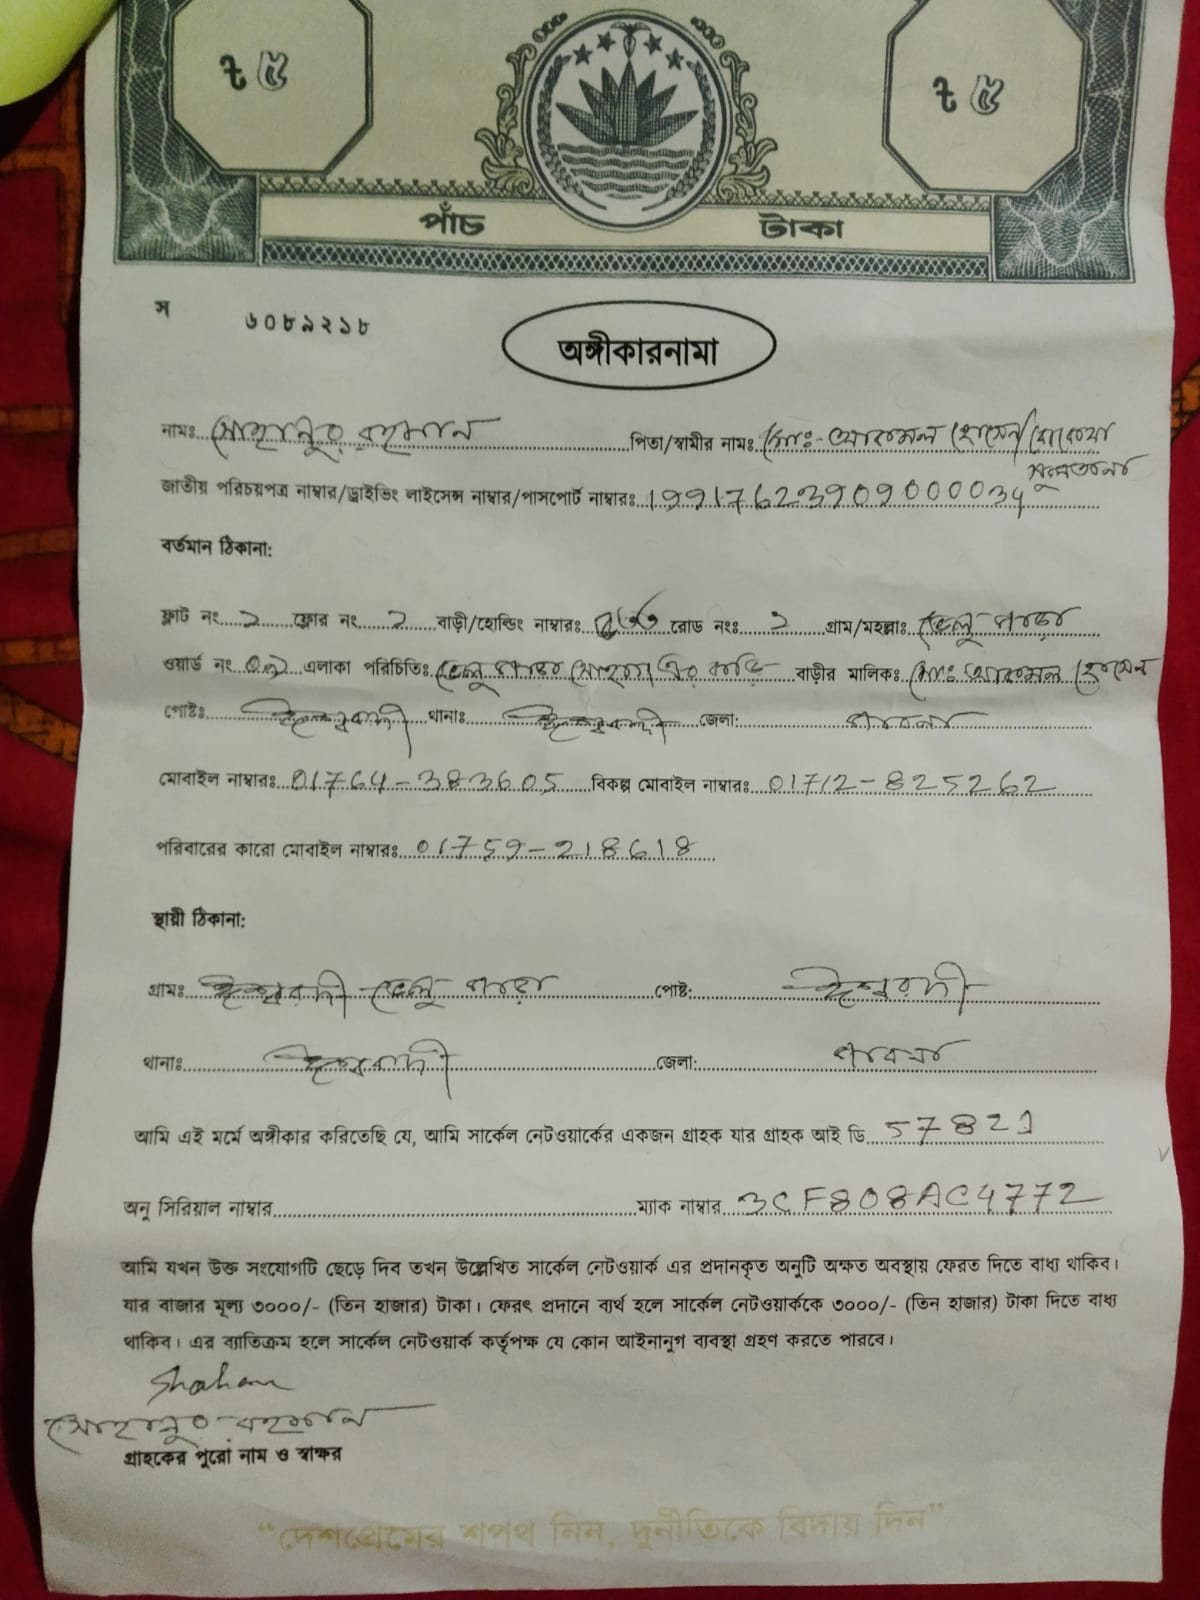 ৳ ৫
৳ ৫
পাঁচ টাকা
স ৬০৮৯২১৮
অঙ্গীকারনামা
নামঃ সোহানুর রহমান পিতা/স্বামীর নামঃ মোঃ- আকমল হোসেন/রোকেয়া
সুলতানা
জাতীয় পরিচয়পত্র নাম্বার/ড্রাইভিং লাইসেন্স নাম্বার/পাসপোর্ট নাম্বারঃ 19917623909000034
বর্তমান ঠিকানা:
ফ্লাট নং ২ ফ্লোর নং ২ বাড়ী/হোল্ডিং নাম্বারঃ রোড নংঃ ২ গ্রাম/মহল্লাঃ ভেলু পাড়া
ওয়ার্ড নং এলাকা পরিচিতিঃ ভেলু পাড়া এর বাড়ি বাড়ীর মালিকঃ মোঃ আকমল হোসেন
পোষ্টঃ ঈশ্বরদী থানাঃ ঈশ্বরদী জেলা: পাবনা
মোবাইল নাম্বারঃ 01764-383605 বিকল্প মোবাইল নাম্বারঃ 01712-825262
পরিবারের কারো মোবাইল নাম্বারঃ 01759-218618
স্থায়ী ঠিকানা:
গ্রামঃ ঈশ্বরদী ভেলু পাড়া পোষ্ট: ঈশ্বরদী
থানাঃ ঈশ্বরদী জেলা: পাবনা
আমি এই মর্মে অঙ্গীকার করিতেছি যে, আমি সার্কেল নেটওয়ার্কের একজন গ্রাহক যার গ্রাহক আই ডি 57821
অনু সিরিয়াল নাম্বার ম্যাক নাম্বার 3CF808AC4772
আমি যখন উক্ত সংযোগটি ছেড়ে দিব তখন উল্লেখিত সার্কেল নেটওয়ার্ক এর প্রদানকৃত অনুটি অক্ষত অবস্থায় ফেরত দিতে বাধ্য থাকিব।
যার বাজার মূল্য ৩০০০/- (তিন হাজার) টাকা। ফেরৎ প্রদানে ব্যর্থ হলে সার্কেল নেটওয়ার্ককে ৩০০০/- (তিন হাজার) টাকা দিতে বাধ্য
থাকিব। এর ব্যাতিক্রম হলে সার্কেল নেটওয়ার্ক কর্তৃপক্ষ যে কোন আইনানুগ ব্যবস্থা গ্রহণ করতে পারবে।
সোহানুর রহমান
গ্রাহকের পুরো নাম ও স্বাক্ষর
“দেশপ্রেমের শপথ নিন, দুর্নীতিকে বিদায় দিন”